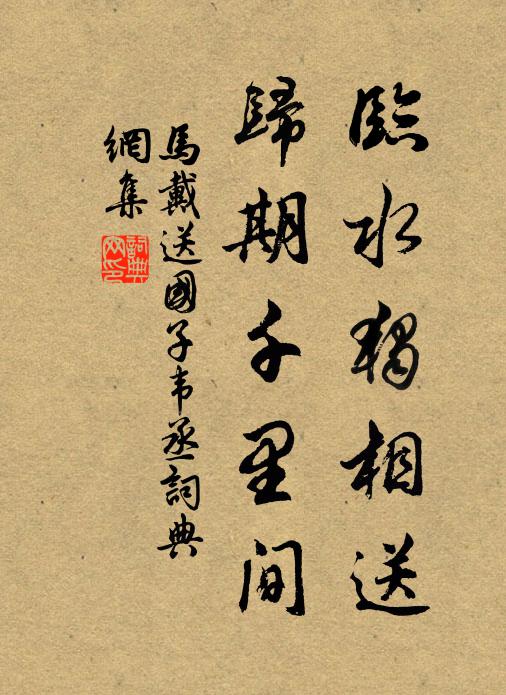 臨水獨相送
歸期千里間
馬戴送國子韦丞詞典
網集
詞典
网印